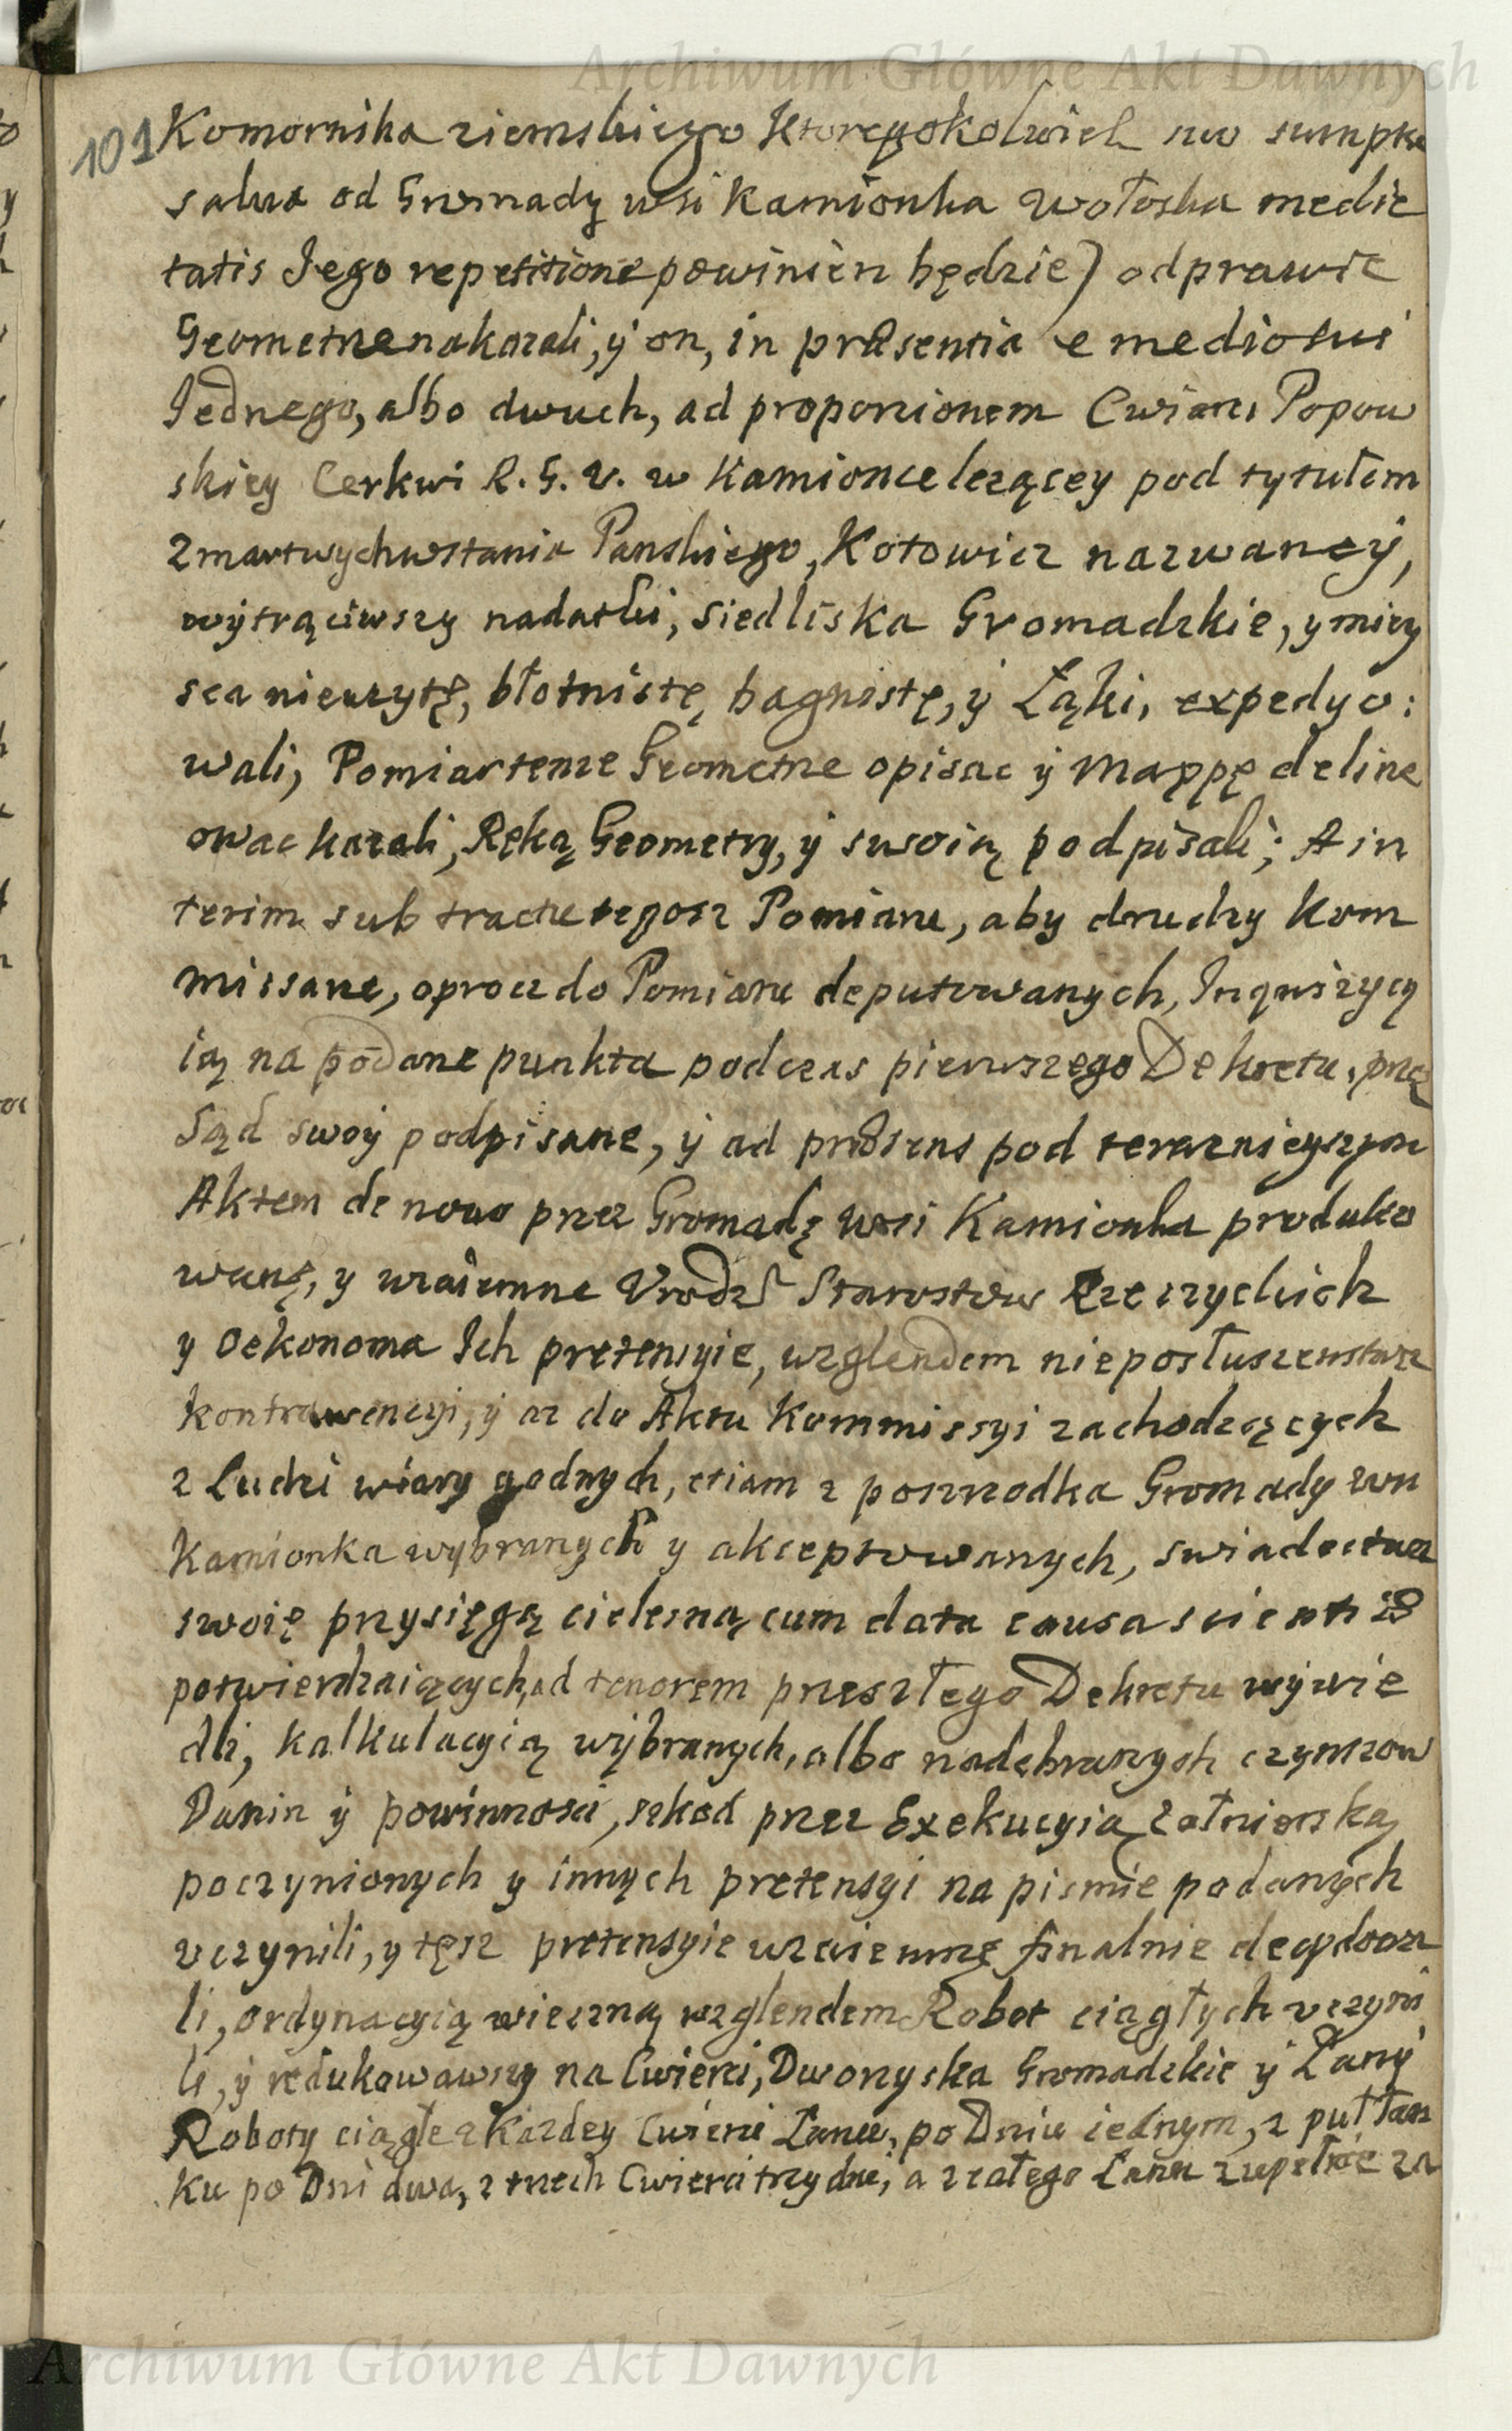 Archiwum Główne Akt Dawnych
101 Komornika ziemskiego ktoregokolwiek suo sumptu
salva od Gromady wsi Kamionka Wołoska medie
tatis Jego repetitione powinien będzie) odprawic
Geometrze nakazali, ÿ on, in præsentia e medio sui
Jednego, albo dwuch, ad proportionem Cwierci Popow
skiey Cerkwi R. G. V. w Kamionce lezącey pod tytułem
Zmartwychwstania Panskiego, Kotowicz nazwaneÿ,
wÿtrąciwszy nadatki, Siedliska Gromadzkie, y miey
sca nieuzytę, błotnistę, bagnistę, ÿ Łąki, expedyo:
wali, Pomiar tenze Geometrze opisac ÿ Mappę deline
owac kazali, Ręką Geometry, ÿ swoią podpisali; A in
terim sub tractu tegosz Pomiaru, aby drudzy Kom
missarze, oprocz do Pomiaru deputowanych, Inquizycy
ią na podane punkta podczas pierwszego Dekretu, przez
Sąd swoÿ podpisane, ÿ ad præsens pod teraznieyszym
Aktem de novo przez Gromadę wsi Kamionka produko
wanę, y wzaiemne Urodz Starostow Rzeczyckich
y Oekonoma Ich pretensyie, wzglendem nieposłuszenstwa
kontrawencyi, ÿ az do Aktu Kommissyi zachodzących
z Ludzi wiary godnych, etiam z poszrzodka Gromady wsi
Kamionka wybranych y akceptowanych, swiadectwa
swoię przysięgą cielesną cum data causa scientiæ
potwierdzaiących, ad tenorem przeszłego Dekretu wÿwie
dli, kalkulacyią wÿbranych, albo nadebranych czynszow
Danin ÿ powinnosci, szkod przez Exekucyią Zołnierską
poczynionych y innych pretensyi na pismie podanych
vczynili, y tęsz pretensyie wzaiemnę finalnie
li, ordynacyią wieczną wzglendem Robot ciągłych vczyni
li, ÿ redukowawszy na Cwierci, Dworzyska Gromadzkie ÿ Łany
Roboty ciągłe z kazdey Cwierci Łanu, po Dniu iednym, z puł Łan
ku po Dni dwa, z trzech Cwierci trzy dni, a z całego Łanu zupełnie za
Archiwum Główne Akt Dawnych